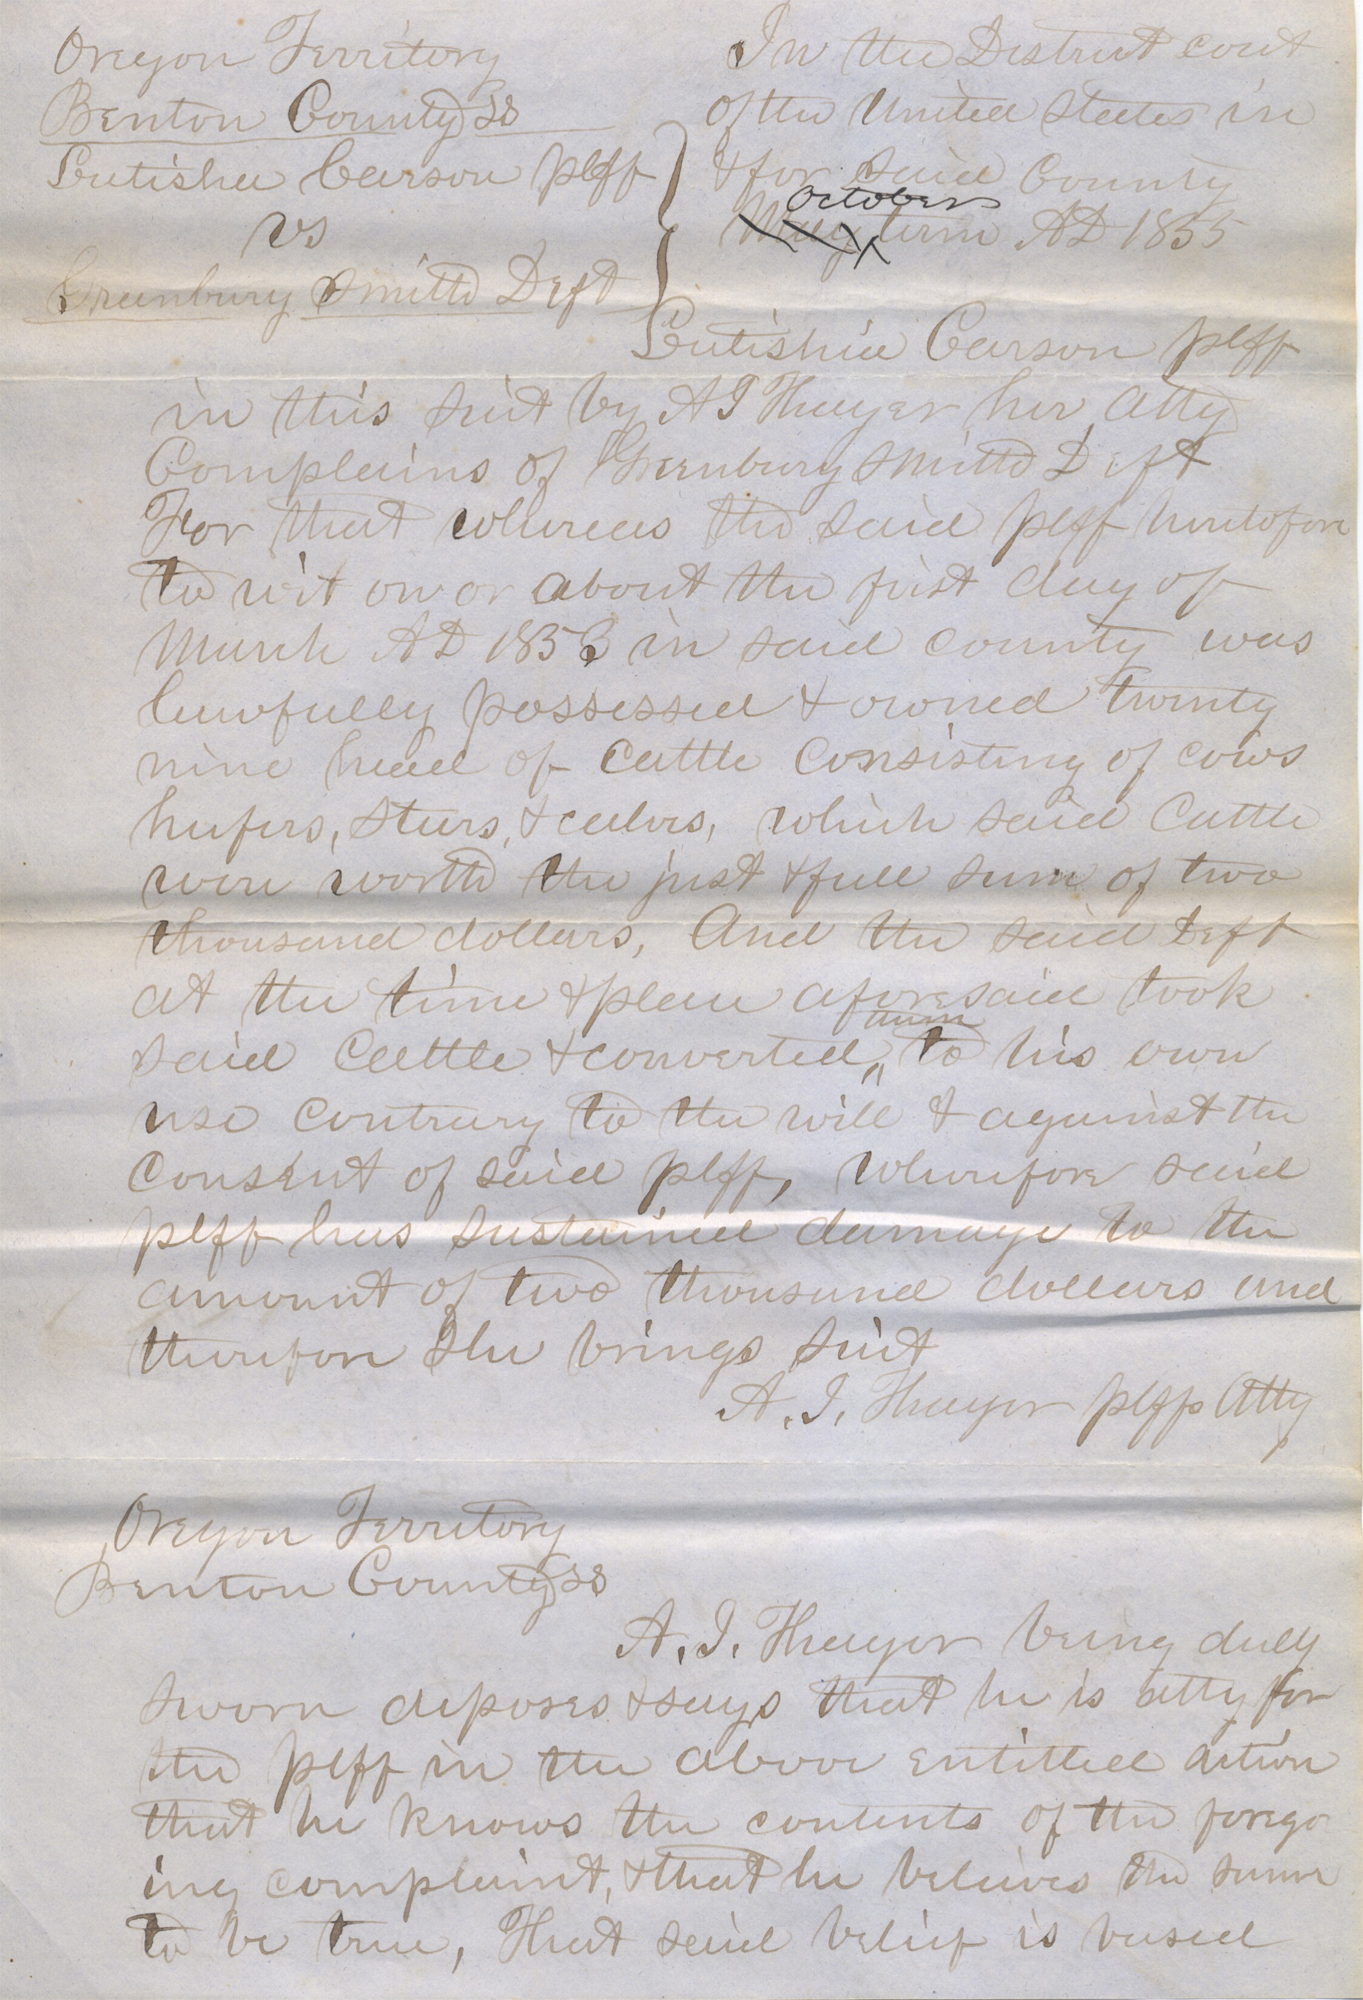 Oregon Territory
Benton County SS
Letitshia Carson plff
vs
Greenbury Smith Deft
In the District cout
of the United States in
& for said County
October
May term AD 1855
Letitshia Carson plff
in this suit by A J Thayer her atty
Complains of Greenbury Smith Deft
For that whereas the said plff heretofore
to wit on or about the first day of
March AD 1853 in said county was
lawfully possessed & owned twenty
nine head of cattle consisting of cows
heifers, steers, & calves, which said cattle
were worth the just & full sum of two
thousand dollars, And the said Deft
at the time & place aforesaid took
them
said Cattle & converted to his own
use contrary to the will & against the
consent of said plff, wherefore said
plff has sustained damage to the
amount of two thousand dollars and
therefore she brings suit
A. J. Thayer plffs Atty
Oregon Territory
Benton County SS
A. J. Thayer being duly
sworn deposes & says that he is atty for
the plff in the above entitled action
that he knows the contents of the forego
ing complaint, & that he believes the same
to be true, That said belief is based